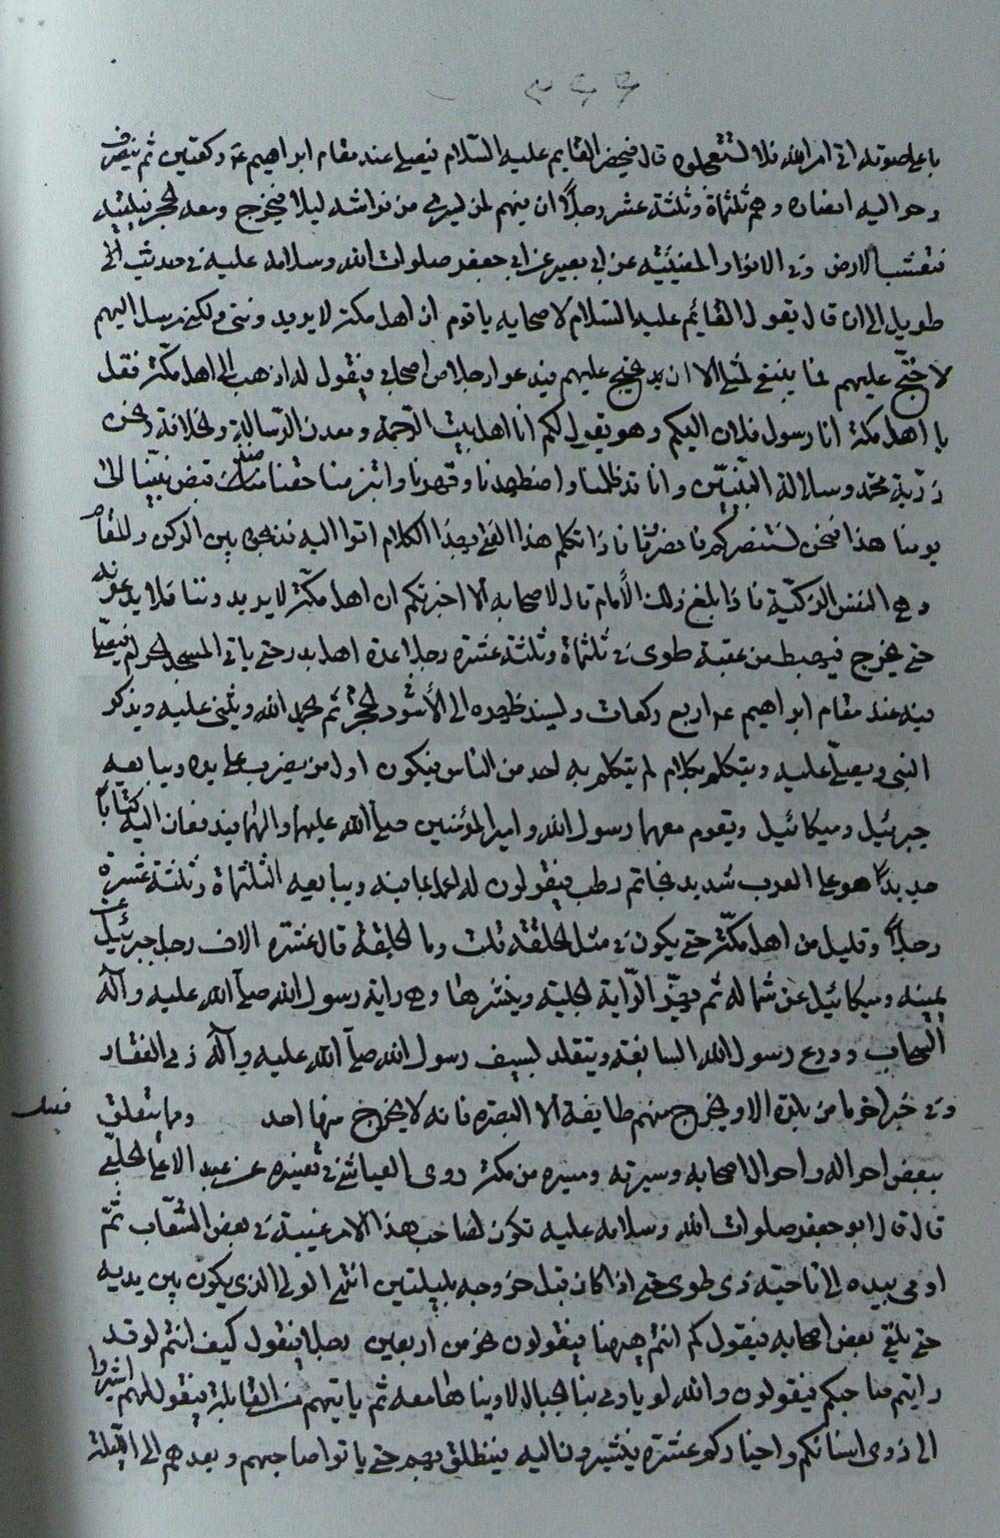 ٣٤٤
باعلى صوته اتى امر الله فلا تستعجلوه قال فيحضر القايم عليه السّلام فيصلي عند مقام ابراهيم عم ركعتين ثم ينصرف
وحواليه اصحابه وهم ثلثماة وثلثة عشر رجلاً ان فيهم لمن يسري من فراشه ليلا فيخرج ومعه الحجر فيلقيه
فتعشب الارض وفي الانوار المضيئة عن ابي بصير عن ابي جعفر صلوات الله وسلامه عليه في حديث
طويل الى ان قال يقول القائم عليه السّلام لاصحابه يا قوم ان اهل مكة لا يريدونني ولكني مرسل اليهم
لاحتجّ عليهم بما ينبغي لمثلي الا ان يحتج عليهم فيدعو رجلا من اصحابه فيقول له اذهب الى اهل مكّة فقل
يا اهل مكة انا رسول فلان اليكم وهو يقول لكم انا اهل بيت الرّحمة ومعدن الرّسالة والخلافة ونحن
ذرّية محمّد وسلالة النّبيّين وانا قد ظلمنا واضطهدنا وقهرنا وابتز منا حقنا منذ قبض نبيّنا الى
يومنا هذا فنحن نستنصركم فانصرونا فاذا تكلم هذا الفتى بهذا الكلام اتوا اليه فذبحوه بين الركن والمقام
وهي النفس الزكيّة فاذا بلغ ذلك الأمام قال لاصحابه الا اخبرتكم ان اهل مكّة لا يريدوننا فلا يدعونه
حتى يخرج فيهبط من عقبة طوى في ثلثماة وثلثة عشرة رجلا عدة اهل بدر حتى ياتي المسجد الحرام فيصلّي
فيه عند مقام ابراهيم عم اربع ركعات ويسند ظهره الى الأسود الحجر ثم يحمد الله ويثنى عليه ويذكر
النبي ويصلّي عليه ويتكلم بكلام لم يتكلم به احد من الناس فيكون اول من يضرب على يده ويبايعه
جبرئيل وميكائيل ويقوم معهما رسول الله وامير المؤمنين صلّى الله عليهما والهما فيدفعان اليه كتاباً
جديداً هو على العرب شديد بخاتم رطب فيقولون له اعمل بما فيه ويبايعه الثلثماة وثلثة عشرة
رجلاً وقليل من اهل مكّة حتى يكون في مثل الحلقة قلت وما الحلقة قال عشرة الاف رجل جبرئيل عن
يمينه وميكائيل عن شماله ثم يهزّ الرّاية الجلية وينشرها وهي راية رسول الله صلّى الله عليه وآله
السحاب ودرع رسول الله السابغة ويتقلد بسيف رسول الله صلّى الله عليه وآله ذي الفقار
وفي خبر اخر ما من بلدة الا ويخرج منهم طايفة الا البصرة فانه لا يخرج منها احد ومما يتعلق
فصل
ببعض احواله واحوال اصحابه وسيرته ومسيره من مكة روى العياشي في تفسيره عن عبد الاعلى الحلبي
قال قال ابو جعفر صلوات الله وسلامه عليه تكون لصاحب هذا الامر غيبة في بعض الشعّاب ثمّ
اومى بيده الى ناحية ذي طوى حتى اذا كان قبل خروجه بليلتين انتهى المولى الذي يكون بين يديه
حتى يلقي بعض اصحابه فيقول كم انتم ههنا فيقولون نحو من اربعين رجلا فيقول كيف انتم لو قد
رايتم صاحبكم فيقولون والله لو ياوي بنا الجبال لاوينا ها معه ثم ياتيهم من القابلة فيقول لهم اشيروا
الى ذوي اسنانكم واخياركم عشرة يشيرون اليه فينطلق بهم حتى ياتوا صاحبهم ويعدهم الى الليلة